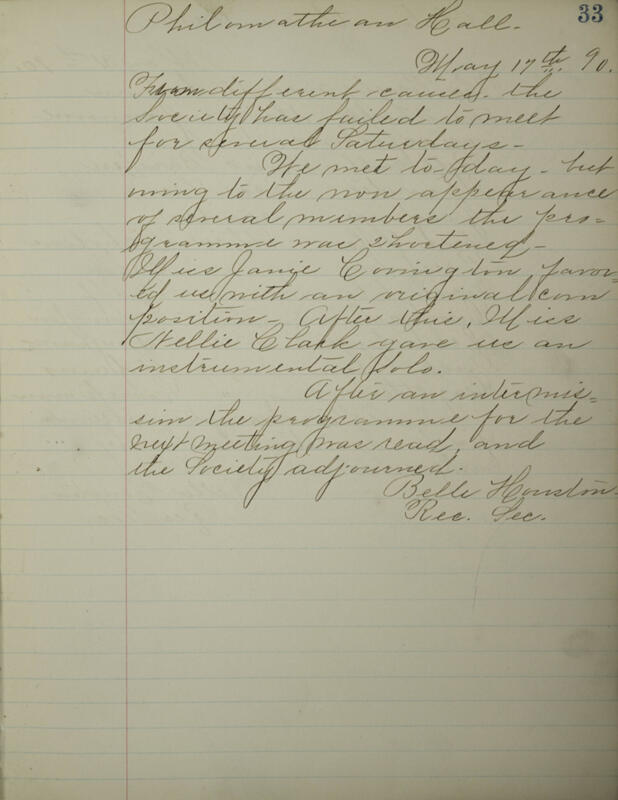 33
Philomathean Hall.
May 17th. 90.
From different causes the
Society has failed to meet
for several Saturdays -
We met to-day - but
owing to the non appearance
of several members the pro=
gramme was shortened -
Miss Janie Covington favor-
ed us with an original com
position - After this, Miss
Nellie Clark gave us an
instrumental solo.
After an intermis=
sion the programme for the
next meeting was read, and
the Society adjourned.
Belle Houston
Rec. Sec.